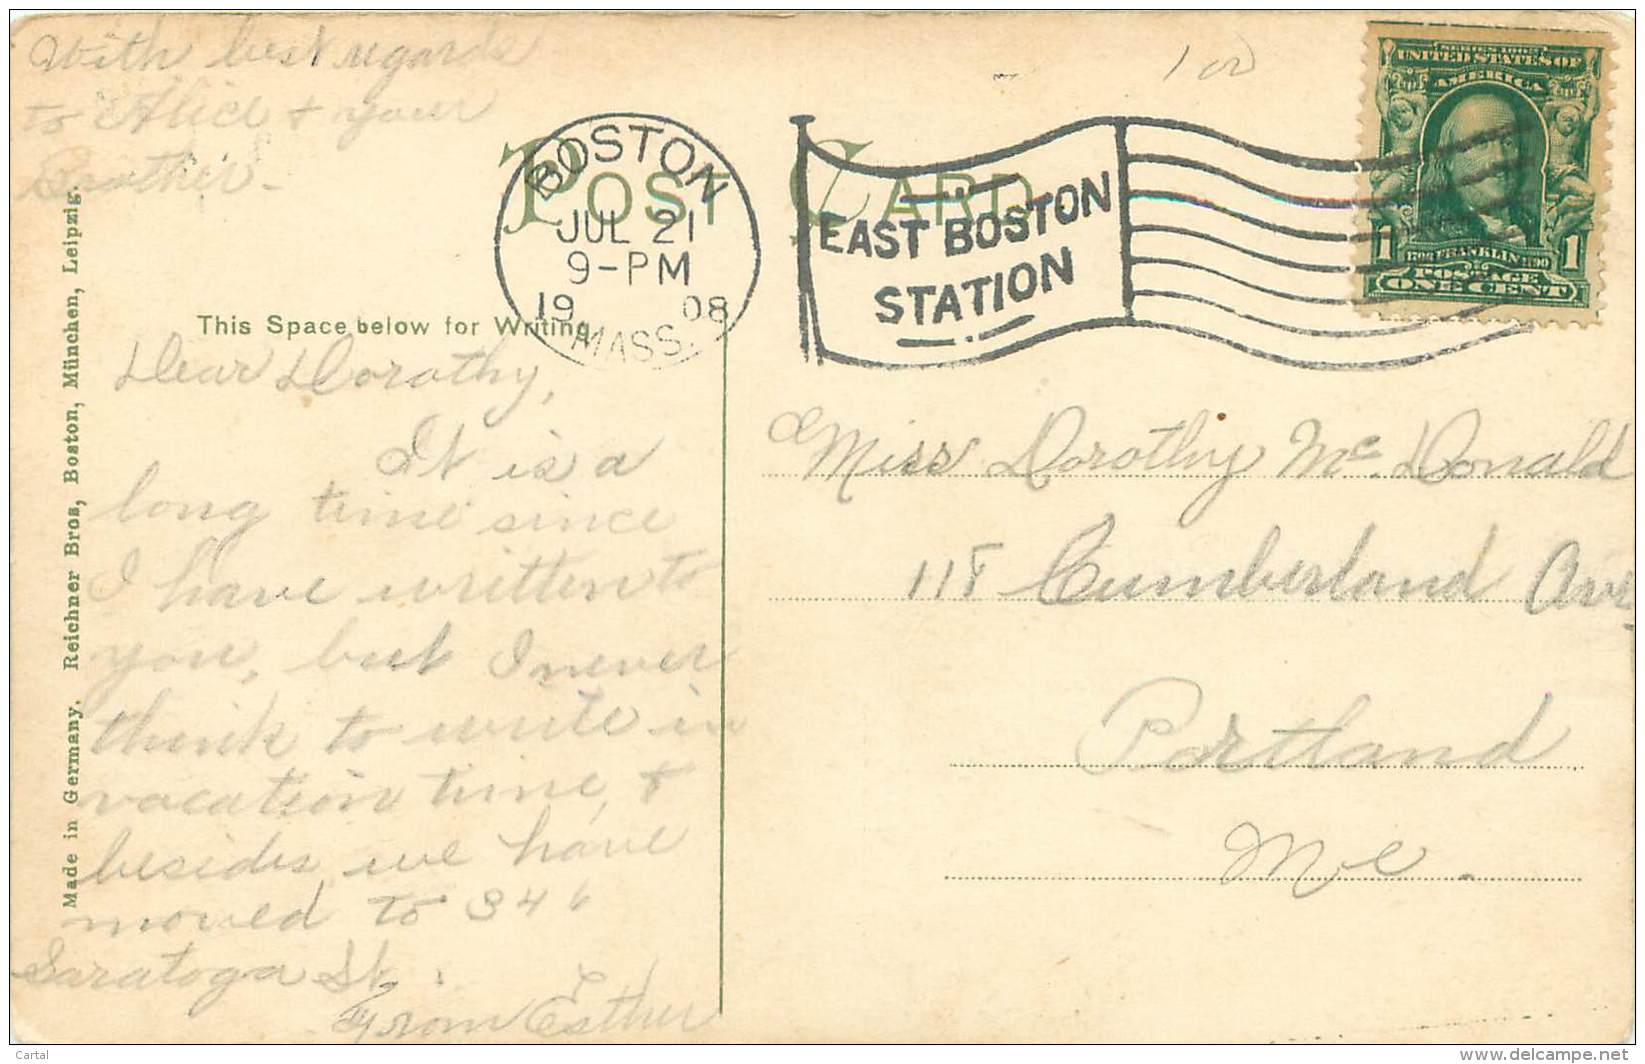 With best regards
to Alice + your
Brother -
POST CARD
BOSTON
JUL 21
9-PM
19 08
MASS.
EAST BOSTON
STATION
SERIES 1902
UNITED STATES OF
AMERICA
FRANKLIN
1 1
POSTAGE
ONE CENT
This Space below for Writing
Dear Dorothy,
It is a
long time since
I have written to
you, but I never
think to write in
vacation time, +
besides we have
moved to 346
Saratoga St.
From Esther
Miss Dorothy Mc. Donald
118 Cumberland Ave
Portland
Me.
Made in Germany. Reichner Bros, Boston, München, Leipzig.
Cartal
www.delcampe.net